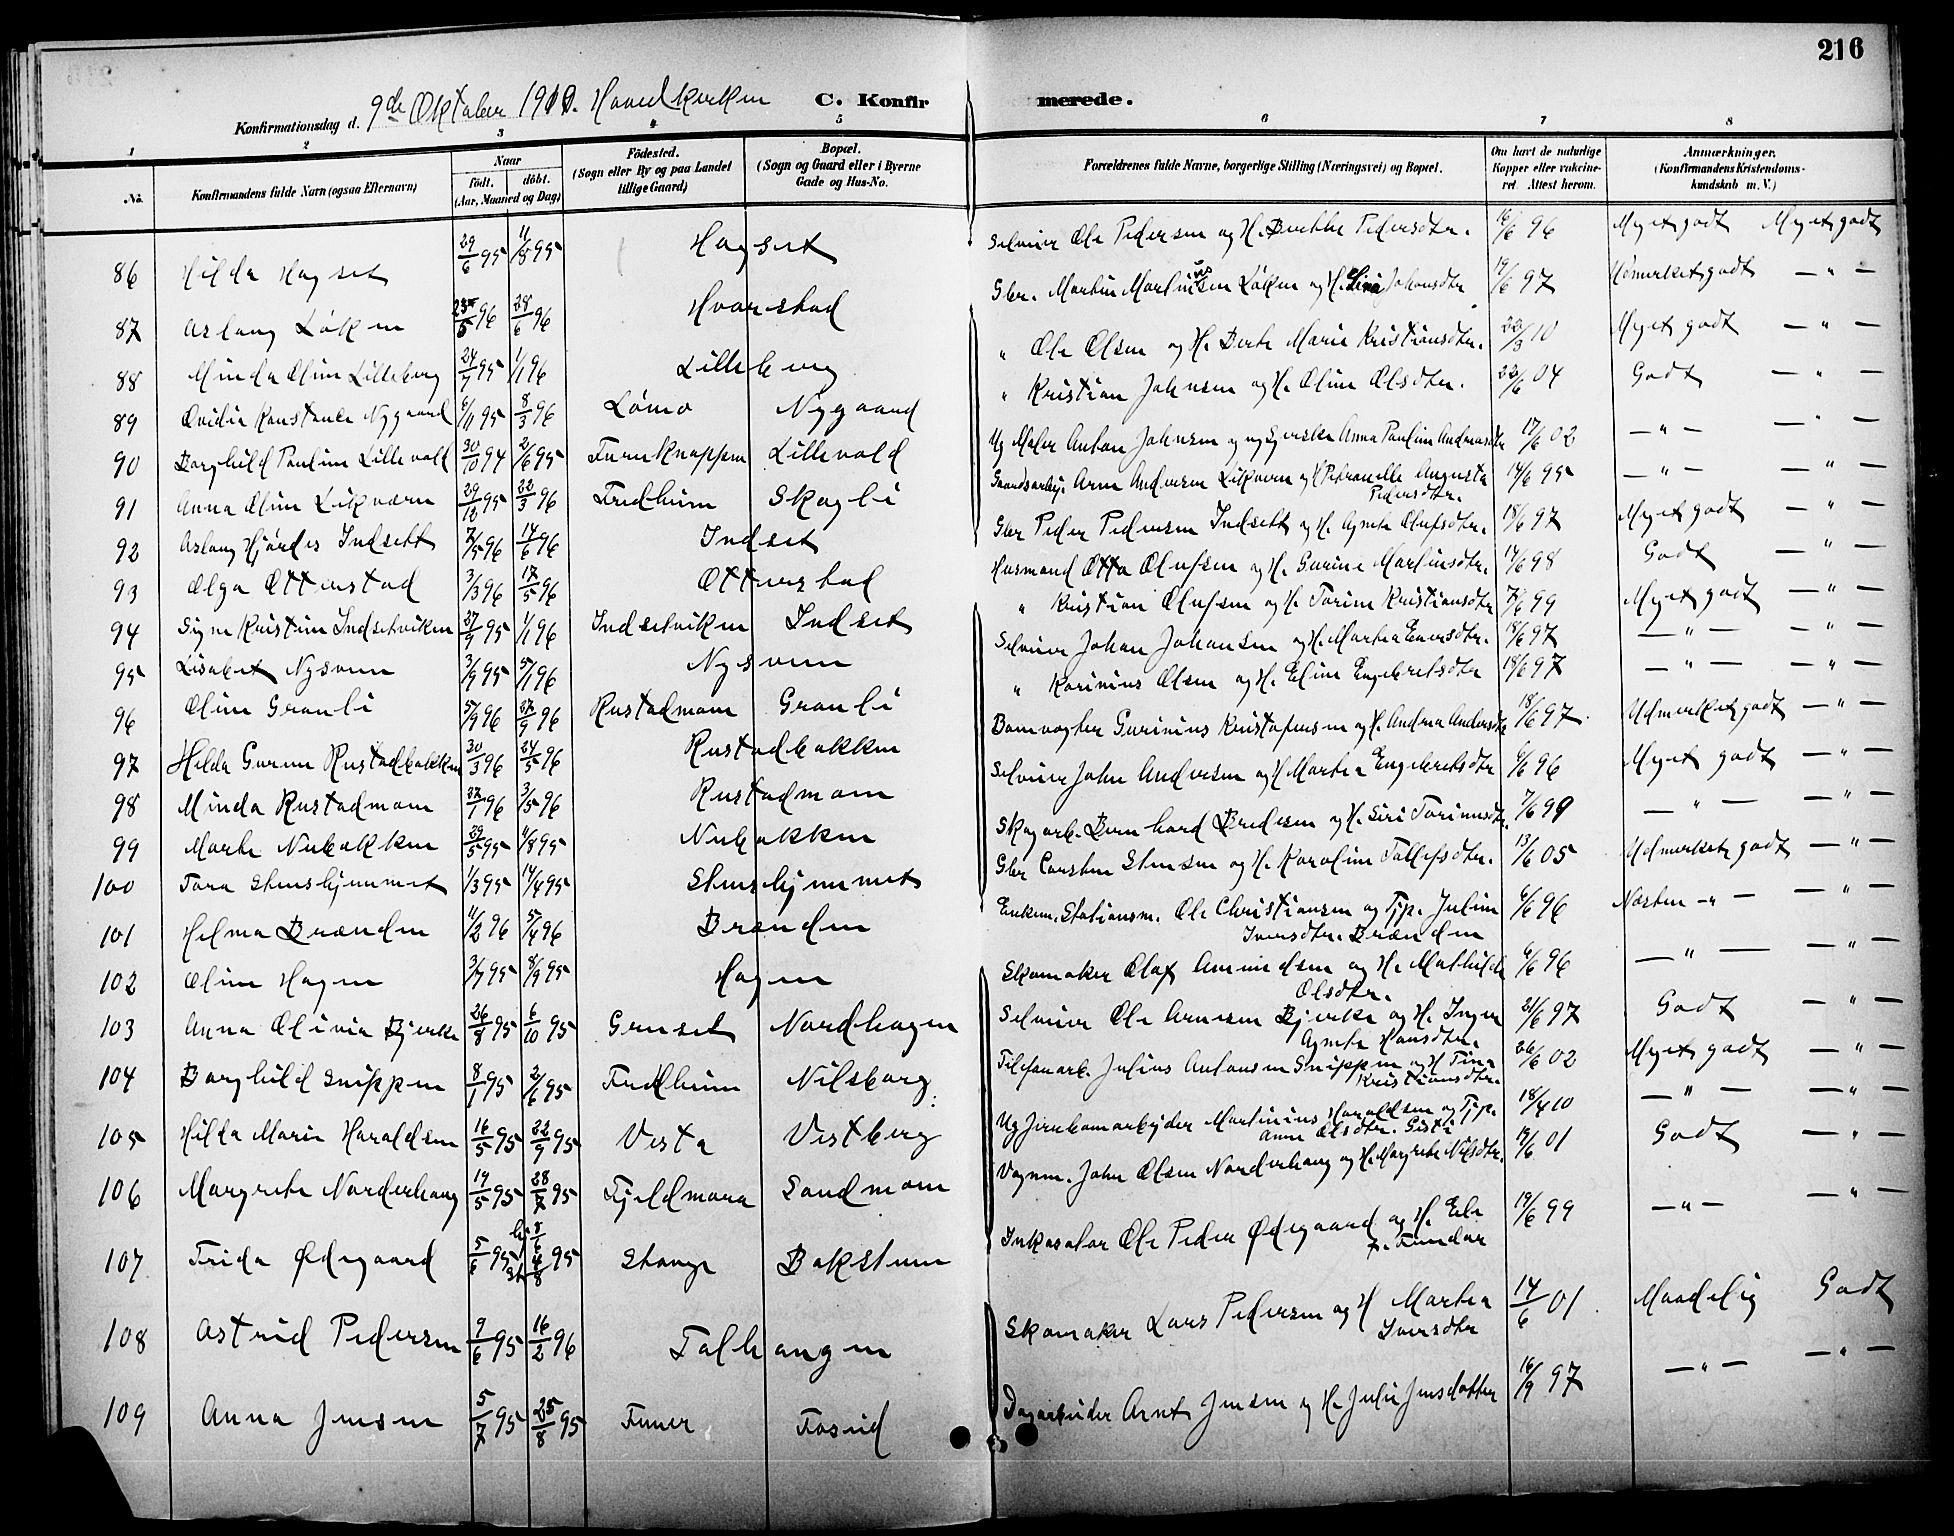 216
Konfirmationsdag d. 9de Oktober 1910. Hovedkirken C. Konfirmerede.
1 2 3 4 5 6 7 8
No. Konfirmandens fulde Navn (ogsaa Efternavn) Naar födt. döbt. (Aar, Maaned og Dag) Födested. (Sogn eller By og paa Landet tillige Gaard) Bopæl. (Sogn og Gaard eller i Byerne Gade og Hus-No. Forældrenes fulde Navne, borgerlige Stilling (Næringsvei) og Bopæl. Om havt de naturlige Kopper eller vakcineret. Attest herom. Anmærkninger. (Konfirmandens Kristendomskundskab m. V.)
86 Hilda Hagset 29/6 95 11/8 95 Hagset Selveier Ole Pedersen og H. Berthe Pedersdtr. 16/6 96 Meget godt Meget godt
87 Aslaug Løken 25/5 96 28/6 96 Hvarstad Gbr. Martin Martinsen Løken og H. Lina Johansdtr 19/6 97 Udmerket godt — " —
88 Minda Oline Lilleberg 24/9 95 1/1 96 Lilleberg " Ole Olsen og H. Berte Marie Kristiansdtr. 22/3 10 Meget godt — " —
89 Ovidia Konstance Nygaard 6/11 95 8/3 96 Lømo Nygaard " Kristian Johnsen og H. Oline Olsdtr. 22/6 04 Godt — " —
90 Borghild Pauline Lillevold 30/10 94 2/6 95 Furuknappen Lillevold Ug Maler Anton Johnsen og ug Syerske Anna Pauline Andreasdtr 17/6 02 — " — — " —
91 Anna Oline Likværn 29/12 95 22/3 96 Fredheim Skogli Gaardsarbej. Arne Andersen Likværn og H Petronelle Augusta Pedersdtr. 14/6 95 — " — — " —
92 Aslaug Hjørdis Indsett 7/5 96 14/6 96 Indset Gbr Peder Pedersen Indsett og H. Agnete Olufsdtr. 18/6 97 Meget godt — " —
93 Olga Otterstad 3/3 96 17/5 96 Otterstad Husmand Otto Olufsen og H. Gurine Martinsdtr. 17/6 98 Godt — " —
94 Signe Kristine Indsetviken 27/9 95 1/1 96 Indsetviken Indset " Kristian Olufsen og H. Torine Kristiansdtr 7/6 99 Meget godt — " —
95 Lisabet Nysveen 3/9 95 5/1 96 Nysveen Selveier Johan Johansen og H. Martea Eversdtr. 18/6 97 — " — — " —
96 Oline Granli 5/9 96 27/9 96 Rustadmoen Granli " Karinius Olsen og H. Eline Engebretsdtr 18/6 97 — " — — " —
97 Hilda Gurine Rustadbakken 30/3 96 24/5 96 Rustadbakken Banevogter Gurinius Kristofersen og H. Andrea Andersdtr 18/6 97 Udmerket godt — " —
98 Minda Rustadmoen 22/1 96 3/5 96 Rustadmoen Selveier John Andersen og H. Martea Engebretsdtr 6/6 96 Meget godt — " —
99 Marte Nubakken 29/5 95 11/8 95 Nubakken Skogarb. Bernhard Bredesen og H. Siri Torinusdtr. 7/6 99 — " — — " —
100 Tora Stenshjemmet 1/3 95 14/4 95 Stenshjemmet Gbr Carsten Stensen og H. Karoline Tollefsdtr. 13/6 05 Udmerket godt — " —
101 Helma Brænden 11/2 96 5/4 96 Brænden Enkem. Stationsm. Ole Christiansen og Tjp. Juline Iversdtr. Brænden 6/6 96 Næsten — " — — " —
102 Oline Hagen 3/7 95 8/9 95 Hagen Skomaker Olaf Amundsen og H. Mathilde Olsdtr. 6/6 96 — " — — " —
103 Anna Olivia Bjerke 26/8 95 6/10 95 Grinset Nordhagen Selveier Ole Arnesen Bjerke og H. Inger Agnete Hansdtr. 21/6 97 Godt — " —
104 Borghild Snippen 8/1 95 2/6 95 Fredheim Nilsborg Telefonarb. Julius Antonsen Snippen og H Tina Kristiansdtr. 26/6 02 Meget godt — " —
105 Hilda Marie Haraldsen 16/5 95 22/9 95 Vesta Vestberg Ug Jernbanearbejder Martinius Haraldsen og Tjp. Anne Olsdtr. 18/4 10 — " — — " —
106 Margrete Norderhaug 19/5 95 28/7 95 Fjeldmora Sandmoen Vognm. John Olsen Norderhaug og H. Margrete Nilsdtr. 19/6 01 Godt — " —
107 Frida Ødegaard 5/6 95 hj. 8/6 st. 4/8 95 Stange Bakstuen Inkasator Ole Peder Ødegaard og H. Eli f. Tundar 19/6 99 — " — — " —
108 Astrid Pedersen 9/6 95 16/2 96 Tollhaugen Skomaker Lars Pedersen og H Martea Iversdtr 14/6 01 Maadelig Godt
109 Anna Jensen 5/7 95 25/8 95 Fosrud Dagarbeider Arnt Jensen og H. Julie Jensdatter 16/9 97 — " — — " —